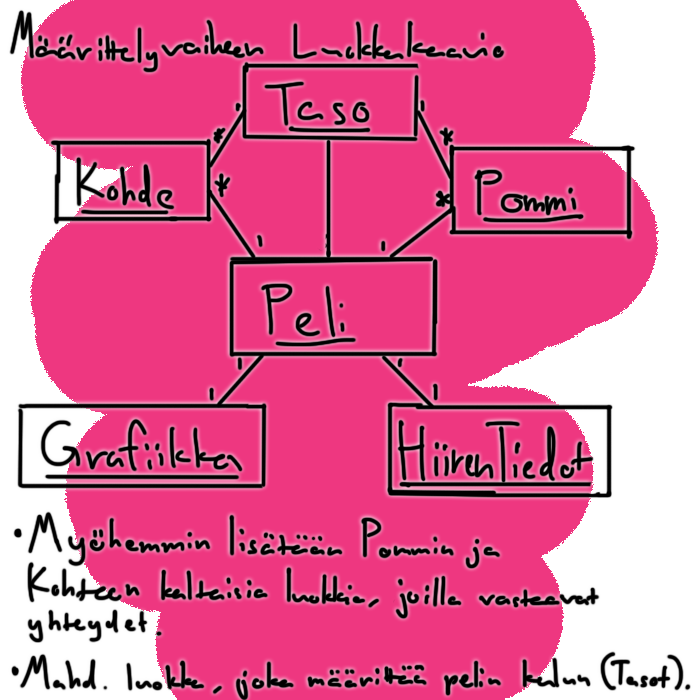 Määrittelyvaiheen Luokkakaavio
Taso
' '
* *
Kohde
Pommi
* *
' '
Peli
' '
' '
Grafiikka
HiirenTiedot
• Myöhemmin lisätään Pommin ja
Kohteen kaltaisia luokkia, joilla vastaavat
yhteydet.
• Mahd. luokka, joka määrittää pelin kulun (Tasot).